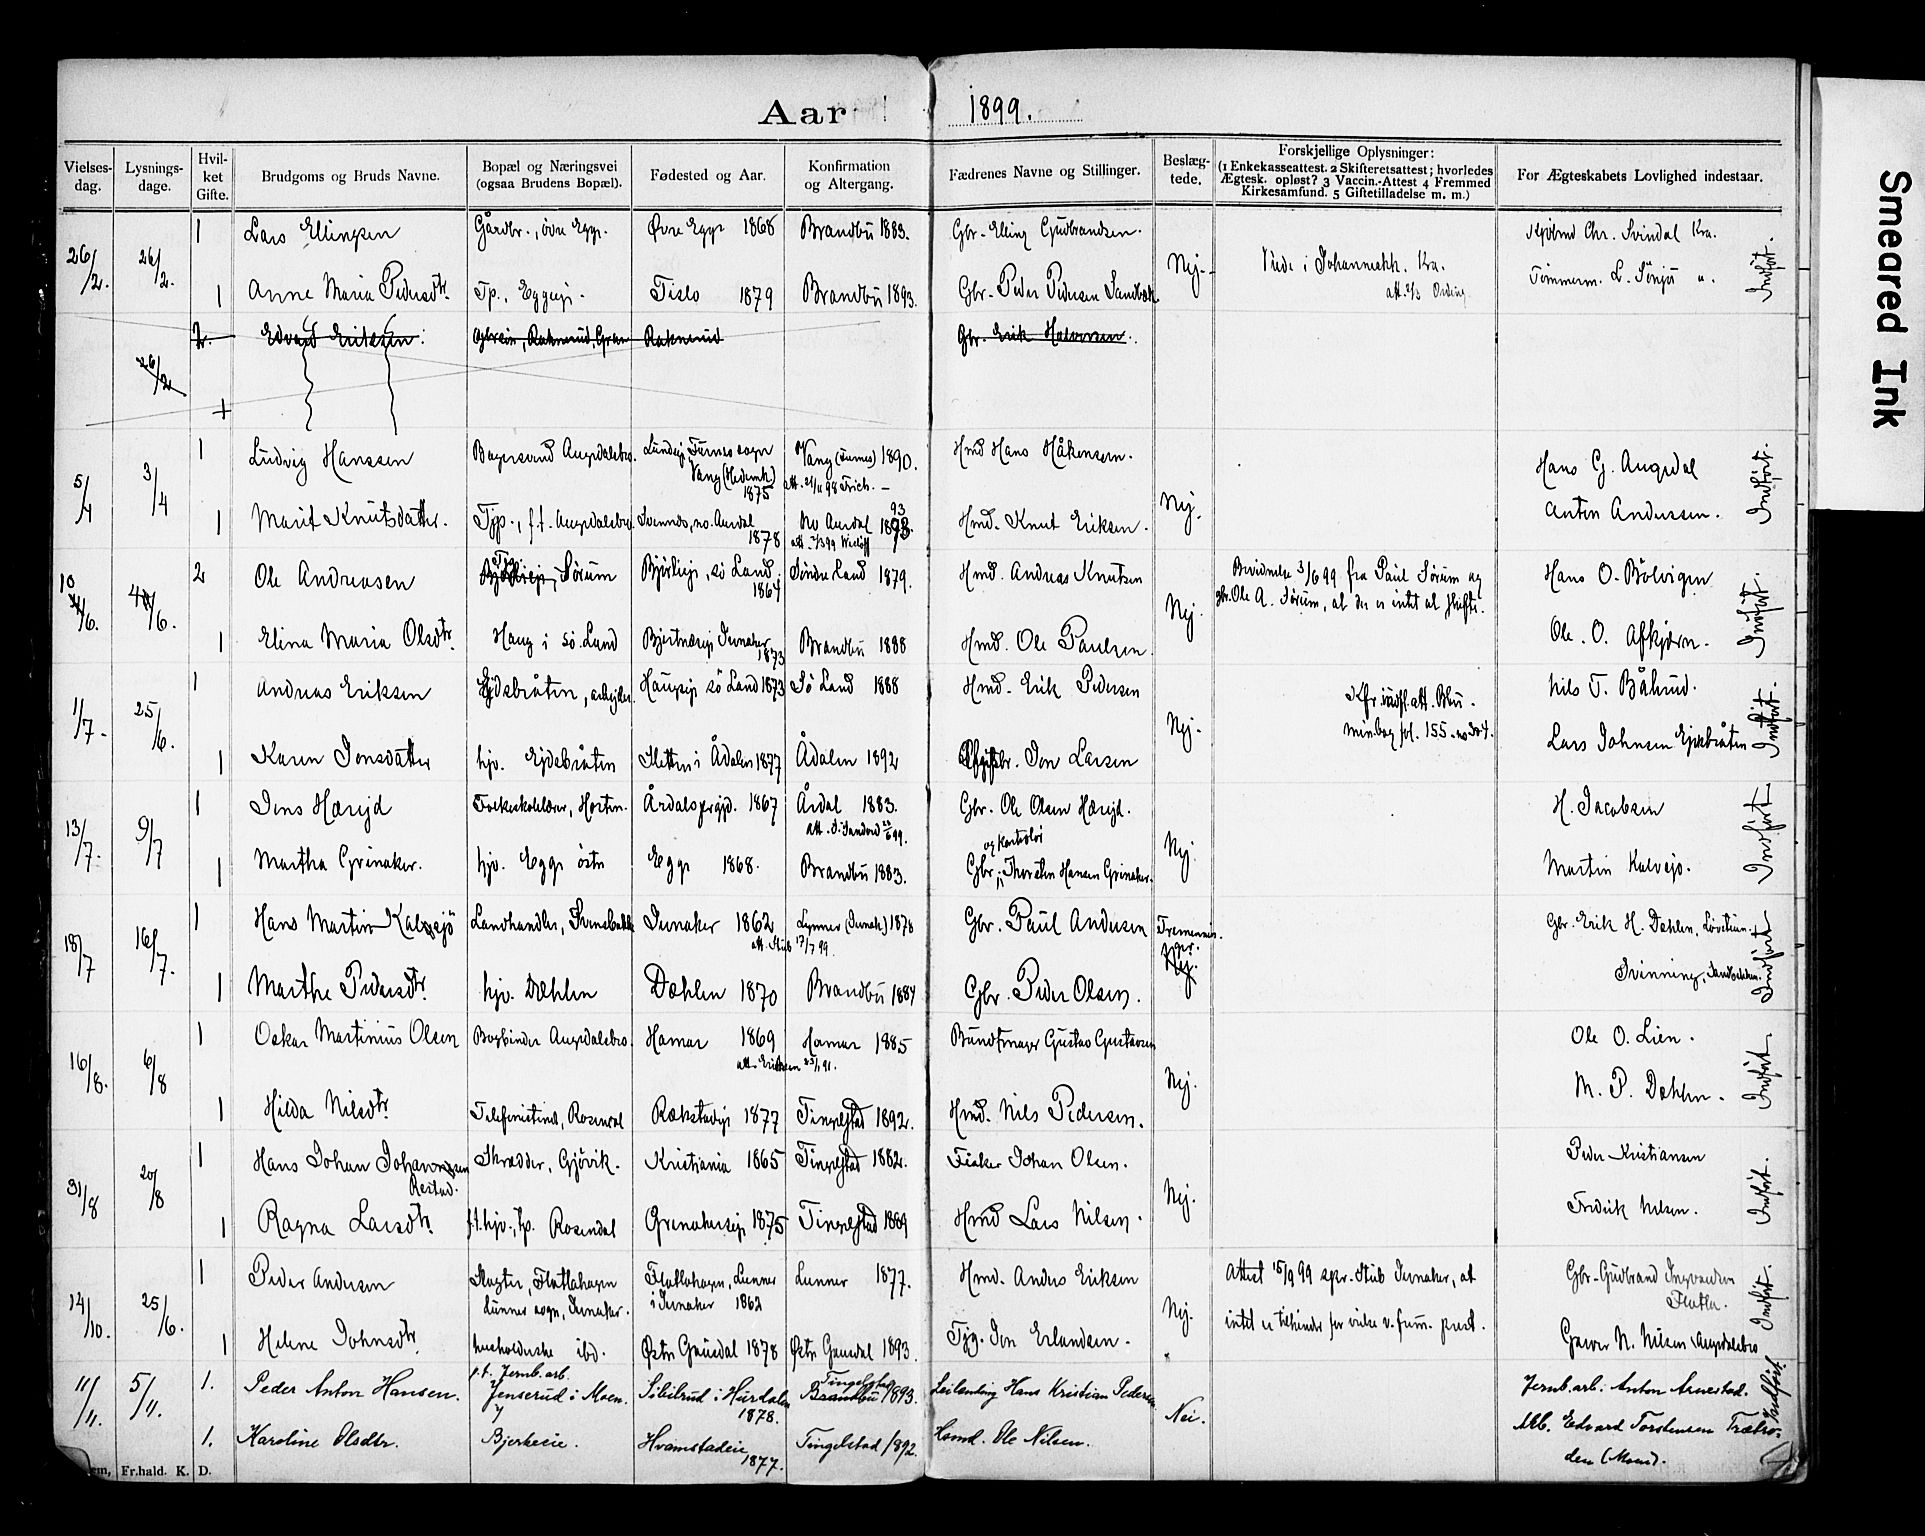 Aar 1899.
Smeared Ink
Vielses-dag. Lysnings-dage. Hvil-ket Gifte. Brudgoms og Bruds Navne. Bopæl og Næringsvei (ogsaa Brudens Bopæl). Fødested og Aar. Konfirmation og Altergang. Fædrenes Navne og Stillinger. Beslæg-tede. Forskjellige Oplysninger: (1 Enkekasseattest. 2 Skifteretsattest; hvorledes Ægtesk. opløst? 3 Vaccin.-Attest 4 Fremmed Kirkesamfund. 5 Giftetilladelse m. m.) For Ægteskabets Lovlighed indestaar.
26/2. 26/2. 1 Lars Ellingsen Gårdbr., övre Egge. Øvre Egge 1868 Brandbu 1883. Gbr. Elling Gudbrandsen. Nej. Viede i Johanneskk. Kra. Chr. Svindal Kra.
1 Anne Maria Pedersdtr. Tp., Eggeeje. Tislo 1879 Brandbu 1893. Gbr. Peder Pedersen Sandbæk Tømmerm. L. Sönju Indført.
26/2 2 Edvard Eriksen. Raknerud, Gran Raknerud Gbr. Erik Halvorsen.
5/4 3/4 1 Ludvig Hanssen Bagersvend Augedalsbro. Lundeje Furnes sogn Vang (Hedemk.) 1875 Vang (Furnes) 1890. Hmd Hans Håkensen. Nej. Hans G. Augedal
1 Marit Knutsdatter. Tjp., f.t. Augedalsbro no. Aurdal 1878 No Aurdal 1893 Hmd. Knut Eriksen. Anton Anderssen. Indført.
10/6. 4/6. 2 Ole Andreasen Sørum Bjørkeje, sö Land. 1864 Søndre Land 1879. Hmd. Andreas Knutsen Nej. Bevidnelse 3/6 99 fra Paul Sørum og gbr. Ole A. Sørum, at der er intet at skifte. Hans O. Bölvigen
1 Elina Maria Olsdtr. Haug i sö. Land Jevnaker 1873 Brandbu 1888 Hmd. Ole Paulsen Ole. O. Askjørn. Indført.
1/7. 25/6. 1 Andreas Eriksen Ejdsbråten, arbejder Haugeje sö Land 1873 Sö Land 1888 Hmd. Erik Pedersen Nej. Kfr. indfl. att. Bbu. min.bog fol. 155 no 34. Nils T. Båhus.
1 Karen Jonsdatter hjv. Ejdsbråten Sletten i Ådalen 1877 Ådalen 1892 Jon Larsen Lars Johnsen Ejdsbråten Indført.
13/7. 9/7 1 Jens Hærejd Folkeskolelærer, Horten. Årdals prgjd. 1867 Årdal 1883. Gbr. Ole Olsen Hæreid. Nej. H. Jacobsen
1 Martha Grinaker. hjv. Egge östre Egge 1868. Brandbu 1883. Gbr. Thorsten Hansen Grinaker. Martin Kalvsjö. Indført
18/7 16/7. 1 Hans Martin Kalvsjö Landhandler, Svensbakke Jevnaker 1862 att. Stub 17/7 99 Lynner (Jevnak) 1878 Gbr. Paul Andersen Gbr. Erik H. Dæhlen, Løvetun.
1 Marthe Pedersdtr. hjv. Dæhlen Dæhlen 1870 Brandbu 1884 Gbr. Peder Olsen. Svinning, Indført
16/8. 6/8 1 Oskar Martinius Olsen Bogbinder Augedalsbro. Hamar 1869 Hamar 1885 Bundtmager Gustav Gustavsen Nej. Ole O. Lien.
1 Hilda Nilsdtr. Telefonistinde, Rosendal Rækstadeje 1877 Tingelstad 1892. Hmd. Nils Pedersen. M. P. Dæhlen. Indført.
31/8 20/8 1 Hans Johan Johannesen Restad. Skrædder, Gjövik. Kristiania 1865 Tingelstad 1882. Fisker Johan Olsen. Nej. Peder Kristiansen
1 Ragna Larsdtr. f.t. hjv., tp. Rosendal Grinakereje 1875 Tingelstad 1889 Hmd Lars Nilsen. Fredrik Nilsen. Indført.
14/10. 25/6. 1 Peder Andersen Slagter, Flatlahagen Lunner sogn, Jevnaker. Flatlahagen, Lunner i Jevnaker 1862 Lunner 1877. Hmd. Anders Eriksen Nej. Attest 15/9 99 spr. Stub Jevnaker, at intet er tilhinder for vielse v. prest. Gbr. Gudbrand Ingvaldsen Flatla.
1 Helene Johnsdtr. husholderske ibd. Østre Gausdal 1878 Østre Gausdal 1893. Jon Erlandsen. Garver N. Nilsen Augedalsbro Indført.
11/11. 5/11. 1. Peder Anton Hansen. p.t. Jernb. arb. Jenserud i Moen. Sibilrud i Hurdalen 1878. Tingelstad Brandbu 1893. Leilænding Hans Kristian Pedersen Nei. Jernb.arb. Anton Arnestad.
1. Karoline Olsdtr. Bjerkeeie. Hvamstadeie 1877. Tingelstad 1892. Husmd. Ole Nilsen. Edvard Torstensen Trætroden (Moen). Indført.
Fr.hald. K. D.